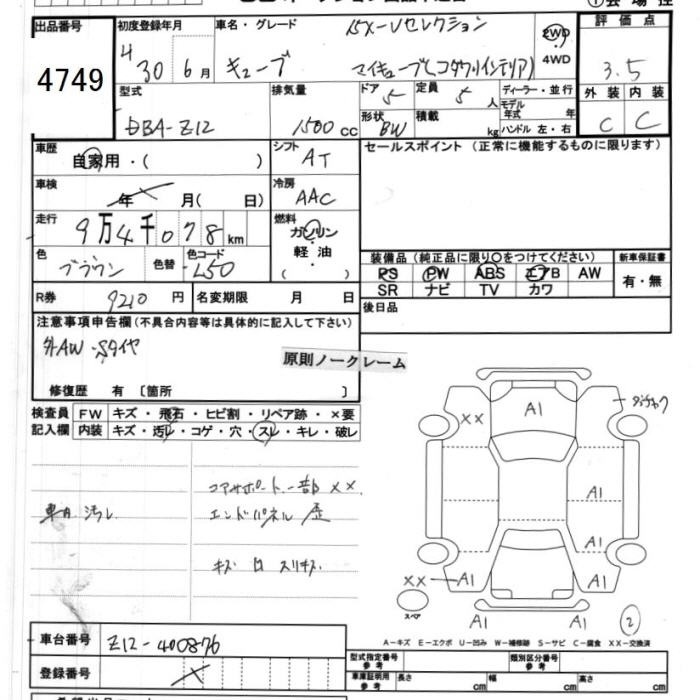 出品番号 初度登録年月 車名・グレード 15X-Vセレクション 2WD 評価点
4749 H 30 6月 キューブ マイキューブ(コダワリインテリア) 4WD 3.5
型式 排気量 ドア 定員 ディーラー・並行 外装 内装
DBA-Z12 1500cc 5 5人 モデル年式 年 C C
形状 BW 積載 kg ハンドル 左・右
車歴 自家用・( ) シフト AT セールスポイント (正常に機能するものに限ります)
車検 年 月( 日) 冷房 AAC
走行 9万4千078km 燃料 ガソリン
軽油
( ・ )
色 ブラウン 色替 色コード L50 装備品 (純正品に限り〇をつけてください) 新車保証書
PS PW ABS エアB AW 有・無
SR ナビ TV カワ
R券 9210円 名変期限 月 日 後日品
注意事項申告欄(不具合内容等は具体的に記入して下さい)
外AW・Sタイヤ
原則ノークレーム
修復歴 有 〔箇所 〕
検査員 FW キズ・飛石・ヒビ割・リペア跡・×要
記入欄 内装 キズ・汚レ・コゲ・穴・スレ・キレ・破レ
コアサポート一部 ××
車内 汚レ エンドパネル 歪
キズ 凹 スリキズ
×× A1
A1
A1
×× A1 A1
スペア
A1 A1 2
A-キズ E-エクボ U-凹み W-補修跡 S-サビ C-腐食 XX-交換済
車台番号 Z12-400876
登録番号
型式指定番号 参考 類別区分番号 参考
車庫証明用 参考 長さ cm 幅 cm 高さ cm